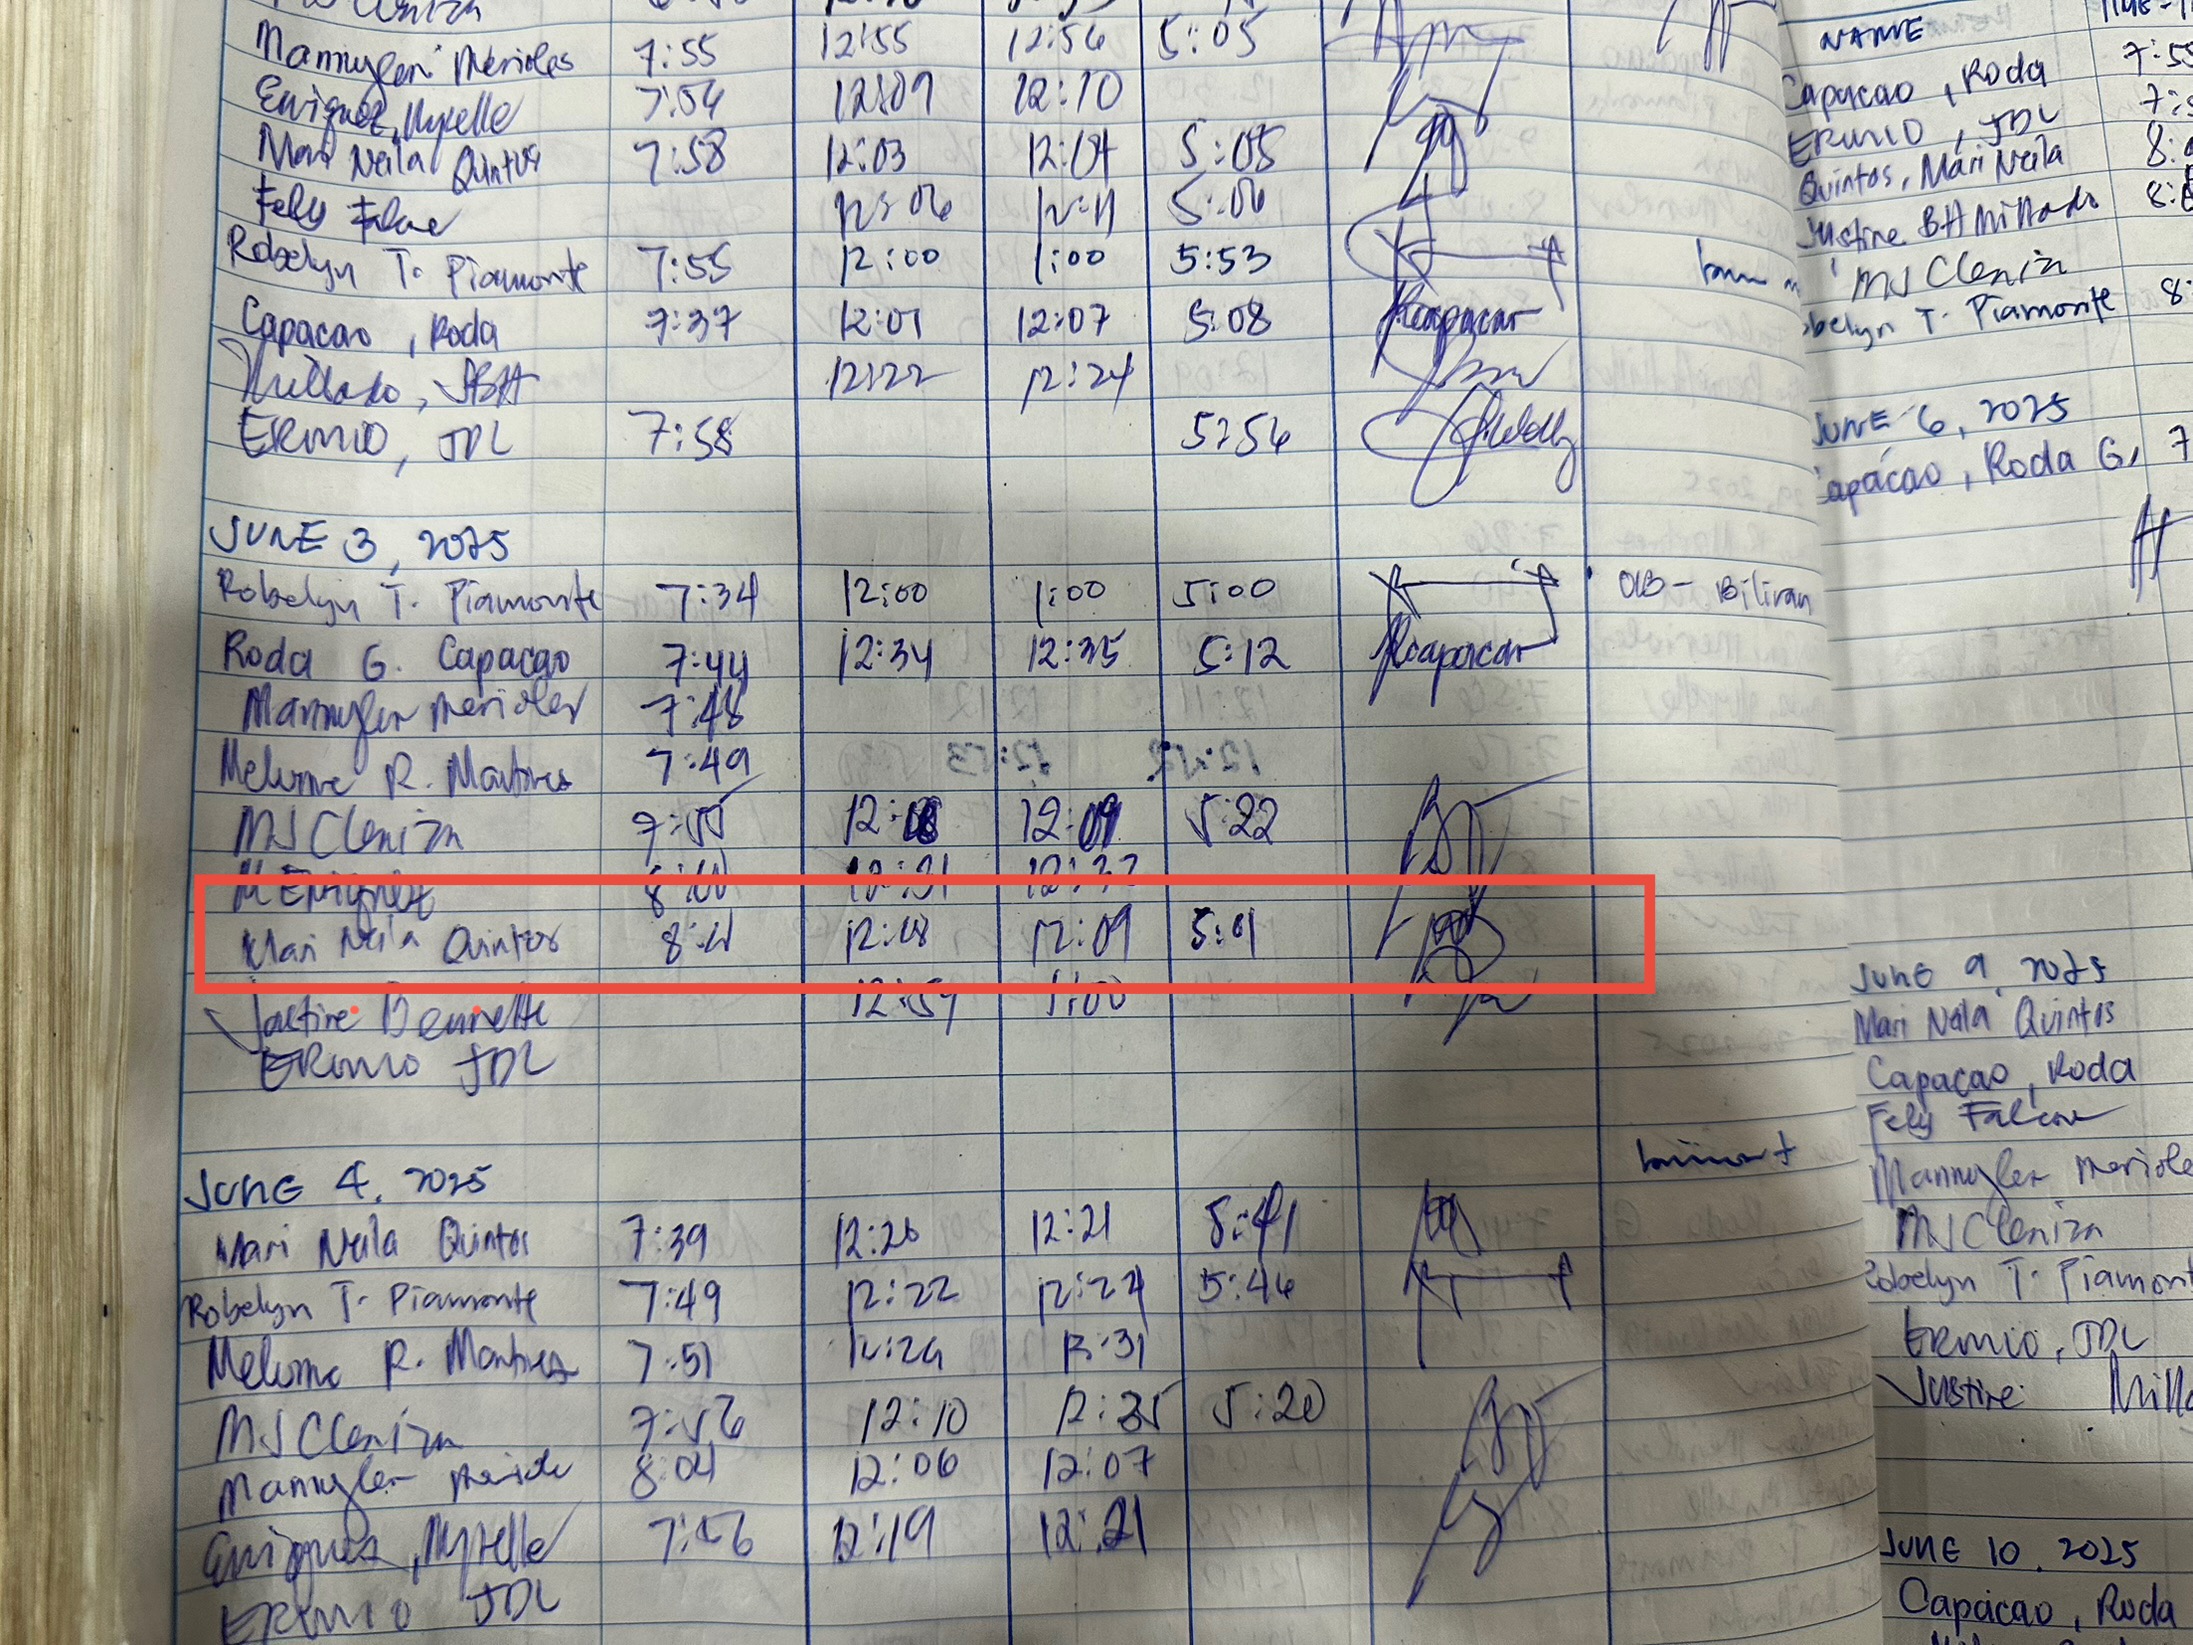 Mannylen Merioles 7:55 12:55 12:56 5:05
Enriquez, Mykelle 7:54 12:09 12:10
Mari Neila Quintos 7:58 12:03 12:04 5:05
Fely Falcon 12:06 12:11 5:06
Robelyn T. Piamonte 7:55 12:00 1:00 5:53
Capacao, Roda 7:37 12:07 12:07 5:08 Rcapacao
Millado, JBH 12:22 12:24
ERMIO, JDL 7:58 5:56
JUNE 3, 2025
Robelyn T. Piamonte 7:34 12:00 1:00 5:00 OB - Biliran
Roda G. Capacao 7:44 12:34 12:35 5:12 Rcapacao
Mannylen Merioles 7:48
R. Martinez 7:49
MJ Cleniza 7:55 12:08 12:09 5:22
M Enriquez 12:31 12:32
Mari Neila Quintos 12:08 12:09 5:01
Justine Bennette 12:59 1:00
ERMIO JDL
JUNE 4, 2025
Mari Neila Quintos 7:39 12:20 12:21 5:41
Robelyn T. Piamonte 7:49 12:22 12:24 5:46
R. Martinez 7:51 12:31
MJ Cleniza 7:56 12:10 12:35 5:20
Mannylen 8:04 12:06 12:07
Enriquez, Mykelle 7:56 12:19 12:21
ERMIO JDL
NAME
Capacao, Roda 7:55
ERMIO, JDL
Quintos, Mari Neila
Justine BH Millado
MJ Cleniza
T. Piamonte
JUNE 6, 2025
Roda G.
JUNE 9, 2025
Mari Neila Quintos
Capacao, Roda
Fely Falcon
Mannylen
MJ Cleniza
Robelyn T.
ERMIO, JDL
Justine
JUNE 10, 2025
Capacao, Roda